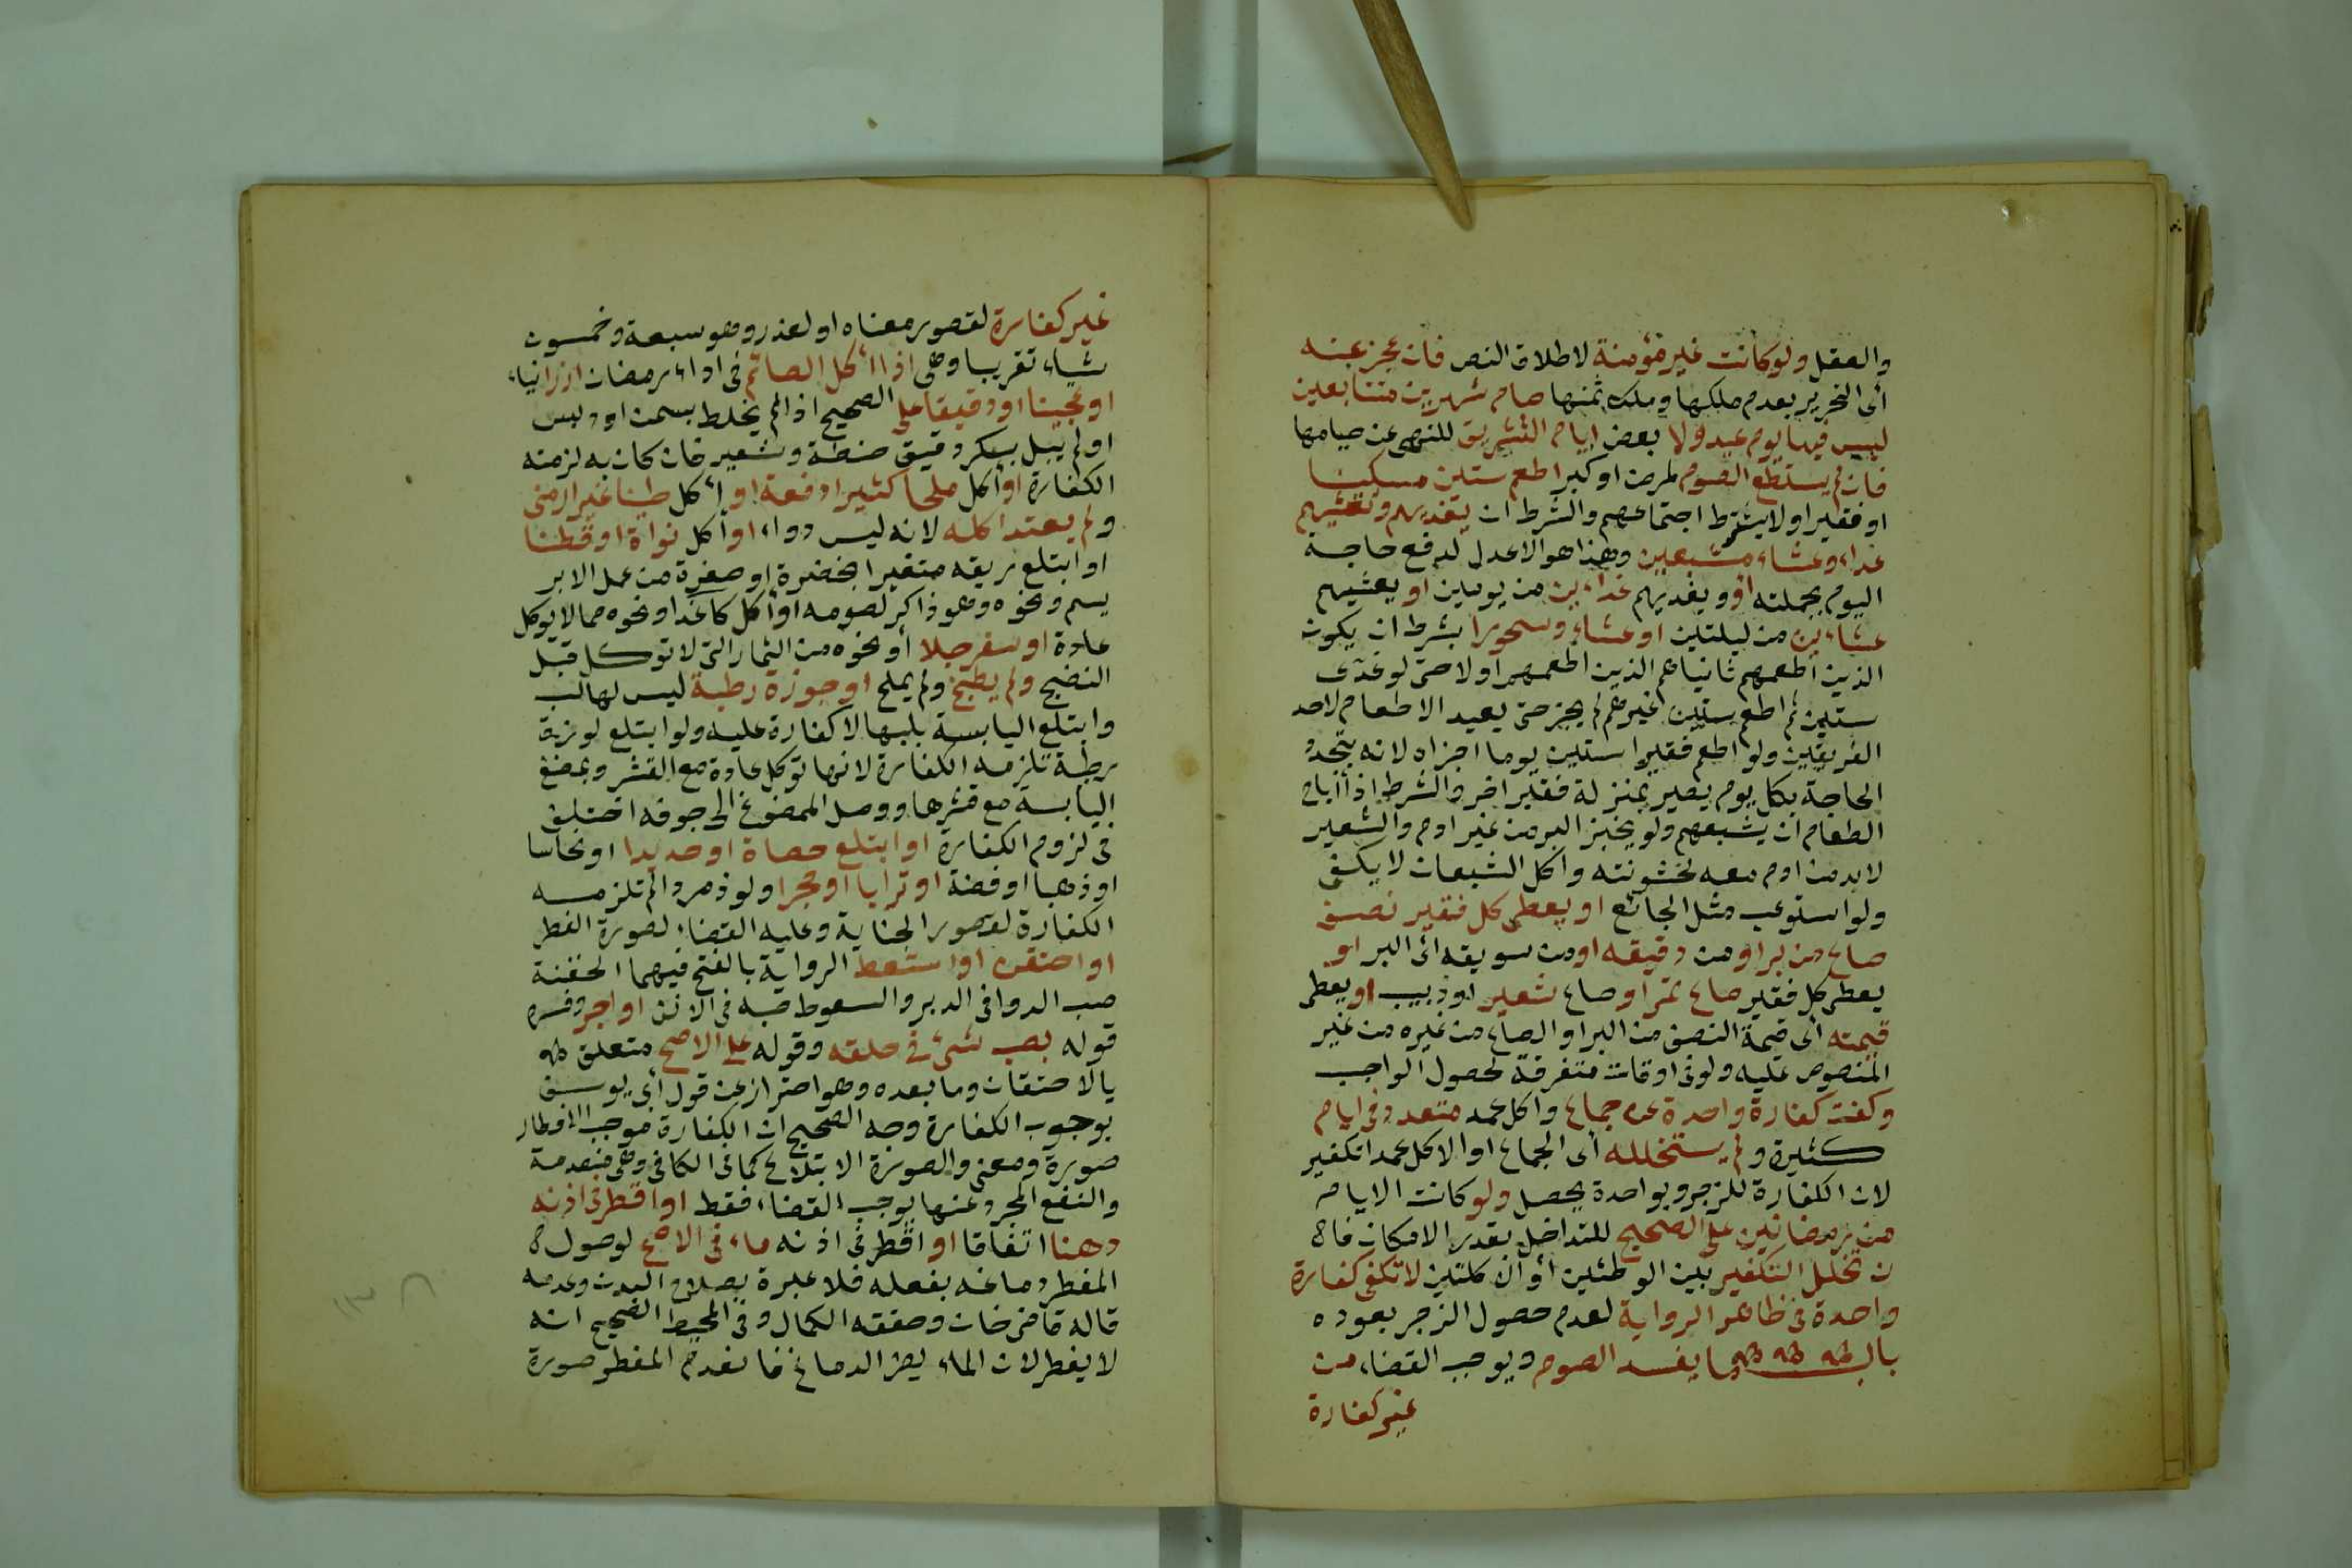 والعقل ولو كانت غير مؤمنة لاطلاق النص فان عجز عنه
أى التحرير بعدم ملكها وملك ثمنها صام شهرين متتابعين
ليس فيها يوم عيد ولا بعض ايام التشريق للنهى عن صيامها
فان لم يستطع الصوم لمرض او كبر اطعم ستين مسكينا
او فقيرا ولا يشترط اجتماعهم والشرط ان يغذيهم ويعشيهم
غداء وعشاء مشبعين وهذا هو الاعدل لدفع حاجة
اليوم بجملته او ويغديهم غداءين من يومين او يعشيهم
عشاءين من ليلتين او عشاء وسحورا بشرط ان يكون
الذين اطعمهم ثانيا هم الذين اطعمهم اولا حتى لو غدى
ستين ثم اطعم ستين غيرهم لم يجز حتى يعيد الاطعام لاحد
الفريقين ولو اطعم فقيرا ستين يوما اجزاه لانه بتجدد
الحاجة بكل يوم يصير بمنزلة فقير اخر والشرط اذا اباح
الطعام ان يشبعهم ولو بخبز البر من غير ادم والشعير
لابد من ادم معه لخشونته واكل الشبعان لا يكفى
ولو استوعب مثل الجائع او يعطى كل فقير نصف
صاع من بر او من دقيقه او من سويقه اى البر او
يعطى كل فقير صاع تمر او صاع شعير او زبيب او يعطى
قيمته أى قيمة النصف من البر او الصاع من غيره من غير
المنصوص عليه ولو فى اوقات متفرقة لحصول الواجب
وكفت كفارة واحدة عن جماع واكل عمد متعدد فى ايام
كثيرة ولم يستخلله أى الجماع او الاكل عمدا تكفير
لان الكفارة للزجر وبواحدة يحصل ولو كانت الايام
من رمضانين على الصحيح للتداخل بقدر الامكان فاه
ن تخلل التكفير بين الوطئين أو الاكلتين لا تكفى كفارة
واحدة فى ظاهر الرواية لعدم حصول الزجر بعوده
باب ما يفسد الصوم ويوجب القضاء من
غير كفارة
غير كفارة لقصور معناه او لعذر وهو سبعة وخمسون
شياء تقريبا وهى اذا أكل الصائم فى اداء رمضان ارزا نياء
او عجينا او دقيقا على الصحيح اذا لم يخلط بسمن او دبس
او لم يبل بسكر دقيق حنطة وشعير فان كان به لزمته
الكفارة او أكل ملحا كثيرا دفعة او أكل طينا غير ارمنى
ولم يعتد اكله لانه ليس دواء او أكل نواة او قطنا
او ابتلع ريقه متغيرا بخضرة او صفرة من عمل الابر
يسم ونحوه وهو ذاكر لصومه او أكل كاغدا ونحوه مما لا يوكل
عادة او سفرجلا أو نحوه من الثمار التى لا توكل قبل
النضج ولم يطبخ ولم يملح او جوزة رطبة ليس لها لب
وابتلع اليابسة بلبها لا كفارة عليه ولو ابتلع لوزة
رطبة تلزمه الكفارة لانها توكل عادة مع القشر وبمضغ
اليابسة مع قشرها ووصل الممضوغ الى جوفه اختلف
فى لزوم الكفارة او ابتلع حصاة او حديدا او نحاسا
او ذهبا او فضة او ترابا او حجرا ولو زمردا لم تلزمه
الكفارة لقصور الجناية وعليه القضاء لصورة الفطر
او احتقن او استعط الرواية بالفتح فيهما الحقنة
صب الدوا فى الدبر والسعوط صبه فى الانف او اوجر وفسره
قوله بصب شىء فى حلقه وقوله على الاصح متعلق
بالاحتقان وما بعده وهو احتراز عن قول أبى يوسف
بوجوب الكفارة وجه الصحيح ان الكفارة موجب الافطار
صورة ومعنى والصورة الابتلاع كما فى الكافى وهى منعدمة
والنفع المجرد عنها يوجب القضاء فقط او اقطر فى اذنه
دهنا اتفاقا او اقطر فى اذنه ماء فى الاصح لوصول ه
المفطر دماغه بفعله فلا عبرة بصلاح البدن وعدمه
قاله قاضى خان وحققه الكمال وفى المحيط الصحيح انه
لا يفطر لان الماء يضر الدماغ فانعدم المفطر صورة